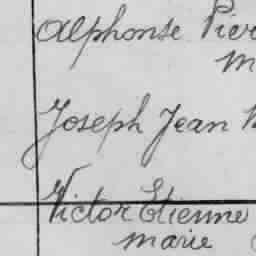 Alphonse Pier
m
Joseph Jean
Victor Etienne
marie